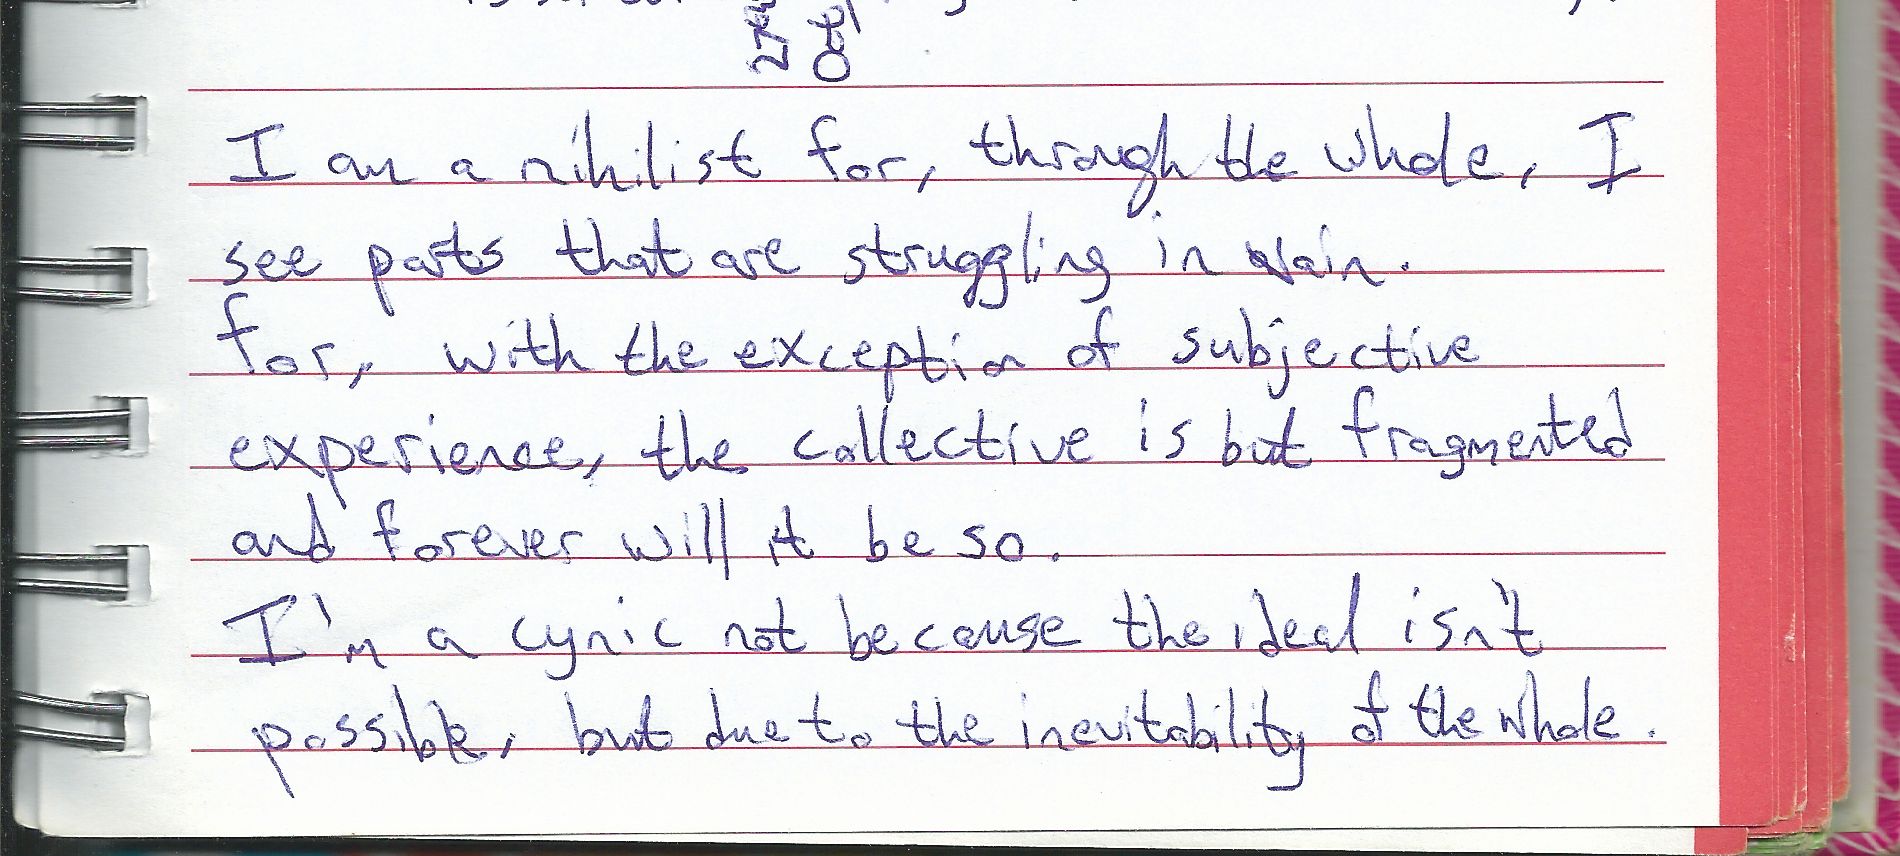 27th
Oct
I am a nihilist for, through the whole, I
see parts that are struggling in vain.
for, with the exception of subjective
experience, the collective is but fragmented
and forever will it be so.
I'm a cynic not because the ideal isn't
possible, but due to the inevitability of the whole.